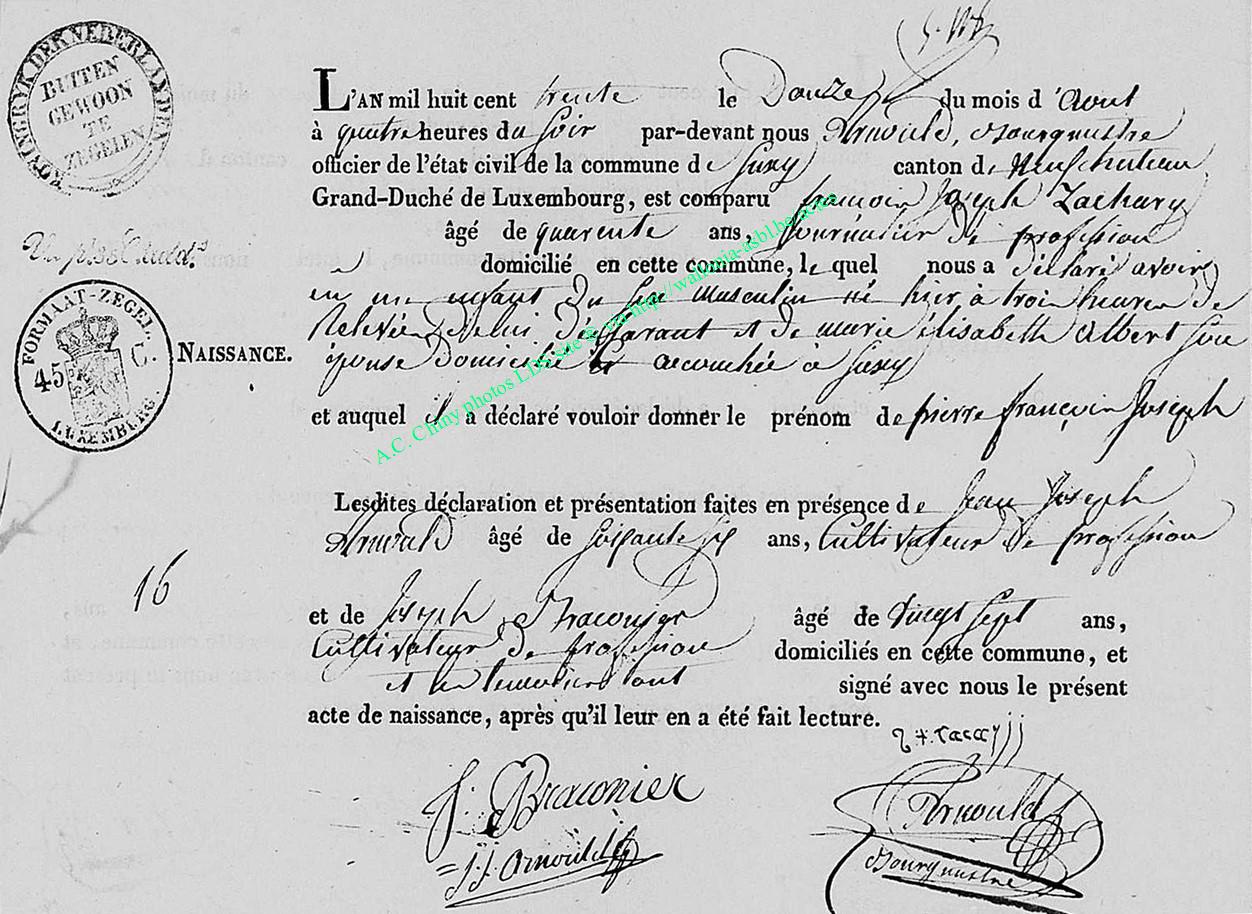 KONINGRYK DER NEDERLANDEN
BUITEN
GEWOON
TE
ZEGELEN
L'AN mil huit cent trente le Douze du mois d'Aout
à quatre heures du soir par-devant nous Arnould, Bourguestre
officier de l'état civil de la commune de Suxy canton de Neufchateau
Grand-Duché de Luxembourg, est comparu françois Joseph Zachary
âgé de quarente ans, Journalier de profession
domicilié en cette commune, lequel nous a déclaré avoir
eu un enfant du sex masculin né hier à trois heures de
Relevée de lui déclarant et de marie élisabeth Albert son
épouse domicilié et accouchée à Suxy
FORMAAT-ZEGEL
45 C.
LUXEMBURG.
NAISSANCE.
et auquel il a déclaré vouloir donner le prénom de pierre françois Joseph
Lesdites déclaration et présentation faites en présence de Jean Joseph
Arnould âgé de soixante six ans, Cultivateur de profession
16
et de Joseph Braconier âgé de vingt sept ans,
Cultivateur de profession domiciliés en cette commune, et
et les temoins ont signé avec nous le présent
acte de naissance, après qu'il leur en a été fait lecture.
J. Braconier
J.J. Arnould
Arnould
Bourguestre
A.C. Chiny photos LDS site @ via http://wallonia-asbl.be/actes